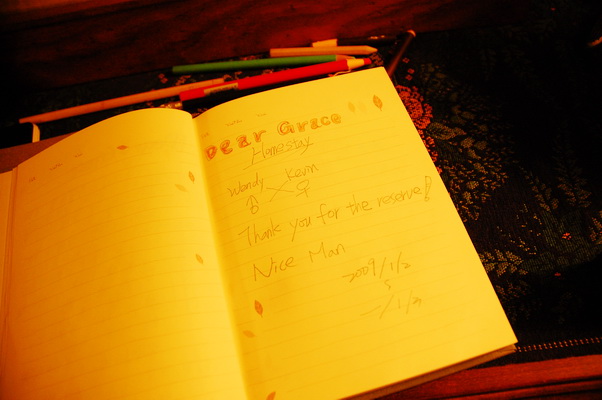 Dear Grace
Homestay
Wandy Kevin
Thank you for the reserve!
Nice Man
2009/1/2